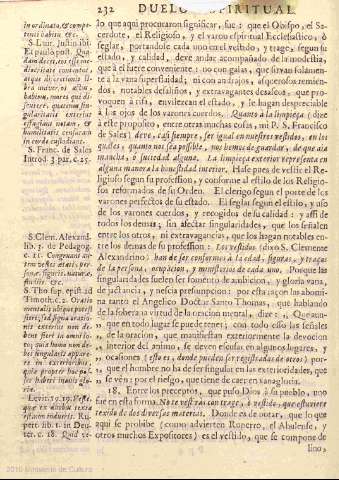 232 DUELO ESPIRITUAL
in ordinata, & compe-
tenti habitu &c.
S. Laur. Justin. lib.
lo que aqui procuraron significar, fue: que el Obispo, el Sa-
cerdote, el Religioso, y el varon espiritual Ecclesiastico, ò
seglar, portandole cada uno en el vestido, y trage, segun su
estado, y calidad, deve andar acompañado de la modestia,
que à èl fuere conveniente: no con galas, que sirvan solamen-
te à la vana superstidad; ni con andrajos, asquerosos remien-
dos, notables desaliños, y extravagantes desaseos, que pro-
voquen à risa, envilezcan el estado, y le hagan despreciable
à los ojos de los varones cuerdos. Quanto à la limpieza (dize
à este proposito, entre otras muchas cosas, mi P. S. Francisco
de Sales) deve, casi siempre, ser igual en nuestros vestidos, en los
quales, quanto nos sea possible, nos hemos de guardar, de que aia
mancha, ò suciedad alguna. La limpieza exterior representa en
alguna manera la honestidad interior. Hase pues de vestir el Re-
ligioso segun su profession, y conforme al estilo de los Religio-
sos reformados de su Orden. El clerigo segun el porte de los
varones perfectos de su estado. El seglar segun el estilo, y uso
de los varones cuerdos, y recogidos de su calidad: y assi de
todos los demas; sin afectar singularidades, que los señalen
entre los otros, ni extravagancias, que los hagan notables en-
tre los demas de su profession. Los vestidos (dixo S. Clemente
Alexandrino) han de ser conformes à la edad, figuras, y traças
de la persona, ocupacion, y ministerios de cada uno. Porque las
singularidades suelen ser fomento de ambicion, y gloria vana,
de jactancia, y necia presumpcion: por esta raçon las abomi-
na tanto el Angelico Doctor Santo Thomas, que hablando
de la soberana virtud de la oracion mental, dize: Que aun-
que en todo lugar se puede tener; con todo esso las señales
de la oracion, que manifiestan exteriormente la devocion
interior del animo, se deven escusar en algunos lugares, y
ocasiones (esto es, donde pueden ser registradas de otros) por-
que el hombre no ha de ser singular en las exterioridades, que
se vèn: por el riesgo, que tiene de caer en vanagloria.
18. Entre los preceptos, que puso Dios à su pueblo, uno
fue en esta forma. No te vestiràs con trage, ò vestido, que estuviere
texido de dos diversas materias. Donde es de notar, que lo que
aqui se prohibe (como advierten Ruperto, el Abulense, y
otros muchos Expositores) es el vestido, que se compone de
lino,
S. Franc. de Sales
Introd. 3. par. c. 25.
S. Clem. Alexand.
lib. 3. de Pedagog.
c. 11.
S. Tho. sup. epist. ad
Timoth. c. 2.
Levit. 19. 19.
2010 Ministerio de Cultura